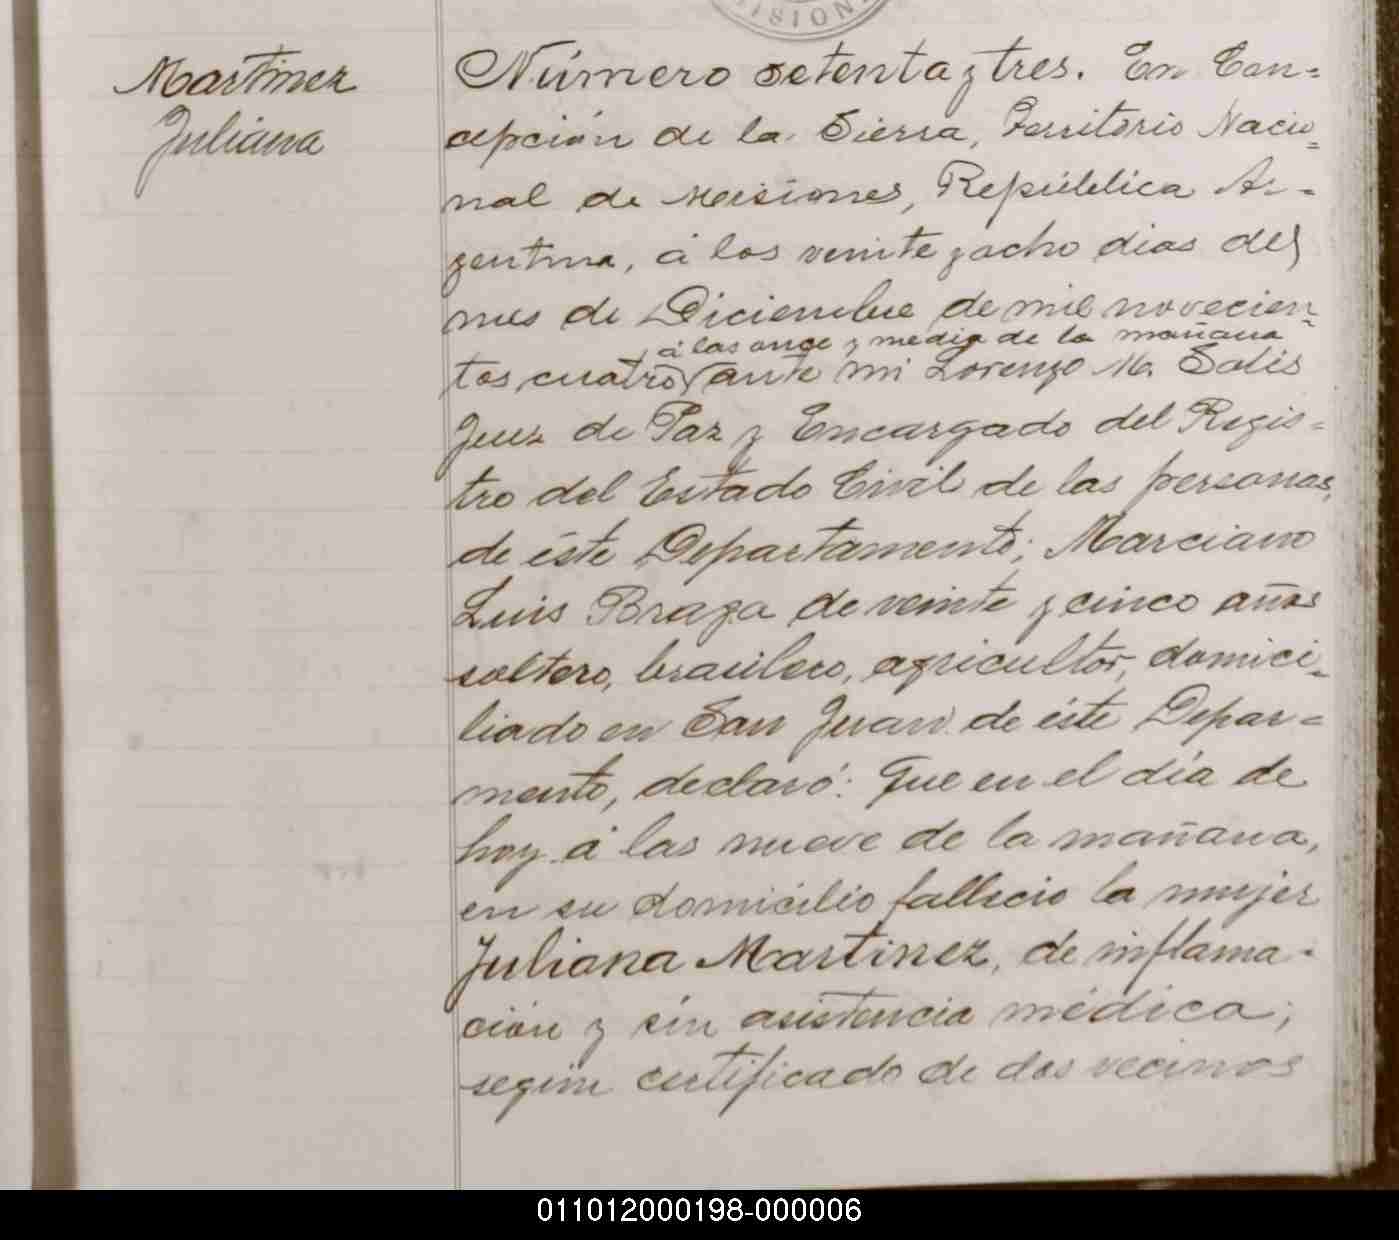 MISIONE
Martinez
Juliana
Número setenta y tres. En Con=
cepción de la Sierra, Territorio Nacio=
nal de Misiones, República Ar=
gentina, á los veinte y ocho dias del
mes de Diciembre de mil novecien=
á las once y media de la mañana
tos cuatro ante mi Lorenzo M. Solis
Juez de Paz y Encargado del Regis=
tro del Estado Civil de las personas,
de éste Departamento; Marciano
Luis Braga de veinte y cinco años
soltero, brasilero, agricultor, domici=
liado en San Juan de éste Depar=
mento, declaró: Que en el día de
hoy á las nueve de la mañana,
en su domicilio fallecio la mujer
Juliana Martinez, de inflama=
ción y sin asistencia médica;
segun certificado de dos vecinos
011012000198-000006